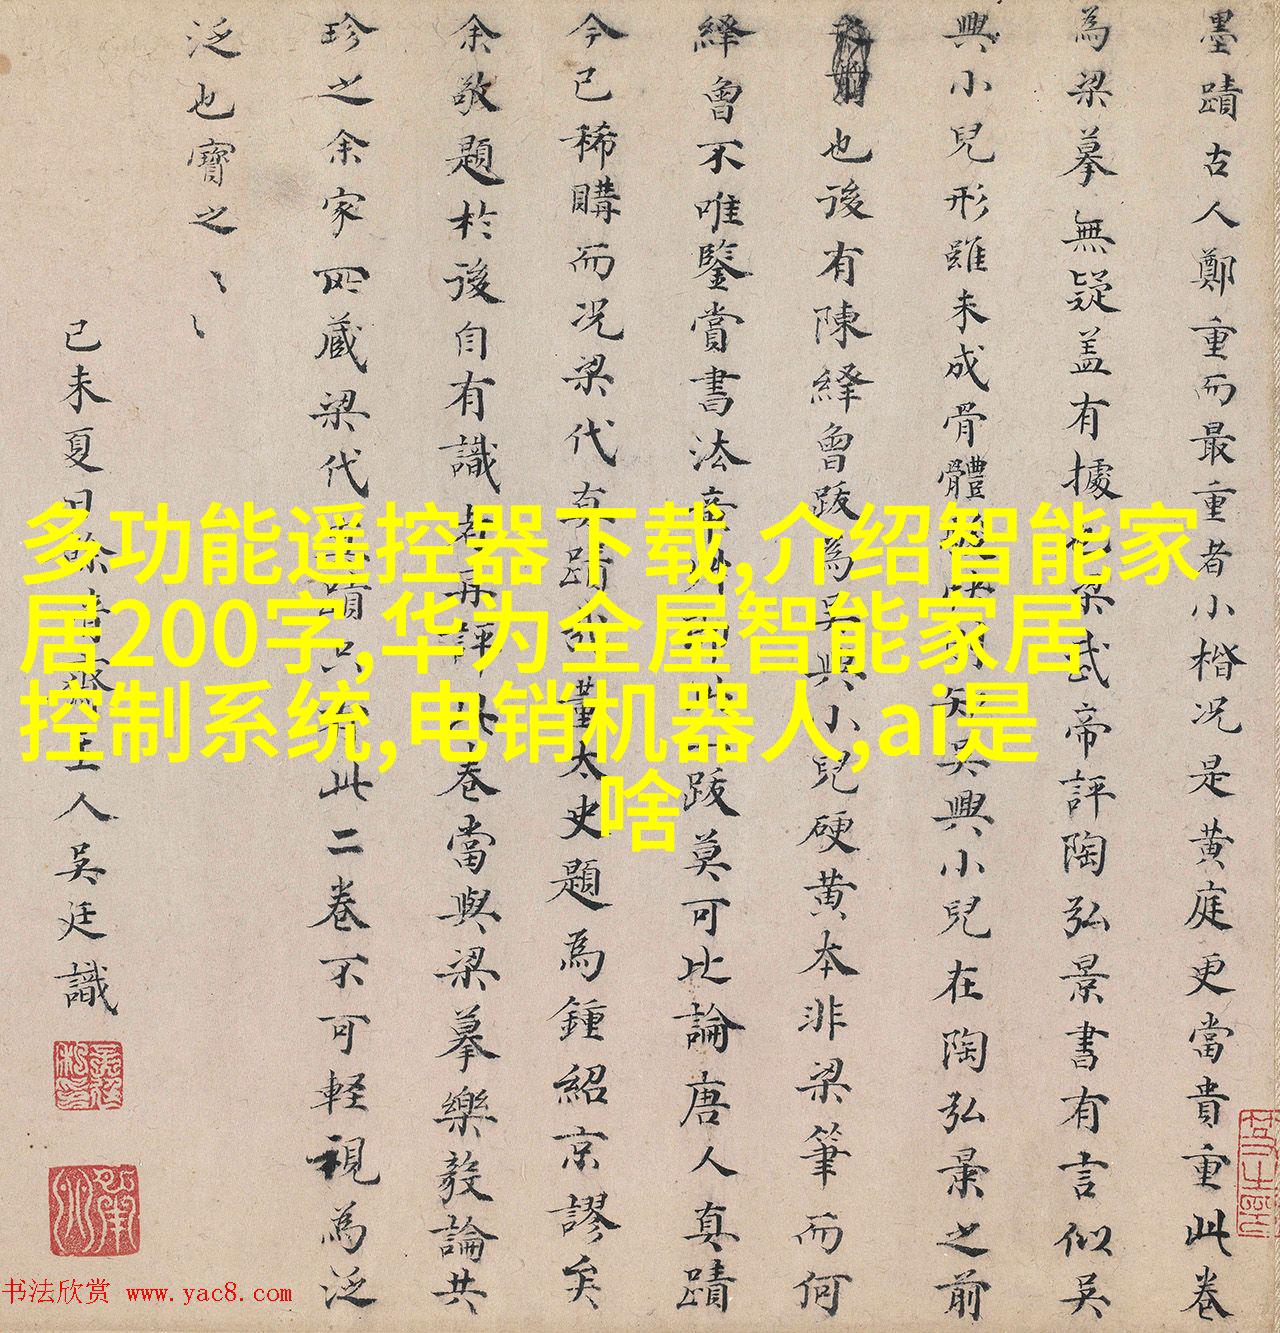 墨蹟古人鄭重而最重者小楷況是黃庭更當貴重此卷
為梁摹無疑蓋有據也梁武帝評陶弘景書有言似吳
興小兒形雖未成骨體知吳興小兒在陶弘景之前
也後有陳繹曾跋為吳興小兒硬黃本非梁筆而何
繹曾不唯鑒賞書法跋莫可比論唐人真蹟
今已稀購而況梁代真蹟董太史題為鍾紹京謬矣
余敬題於後自有識者再評此卷當與梁摹樂毅論共
珍之余家所藏梁代真蹟只有此二卷不可輕視為泛
泛也寶之〻〻
己未夏日餘清齋主人吳廷識
多功能遥控器下载,介绍智能家
居200字,华为全屋智能家居
控制系统,电销机器人,ai是
啥
书法欣赏 www.yac8.com